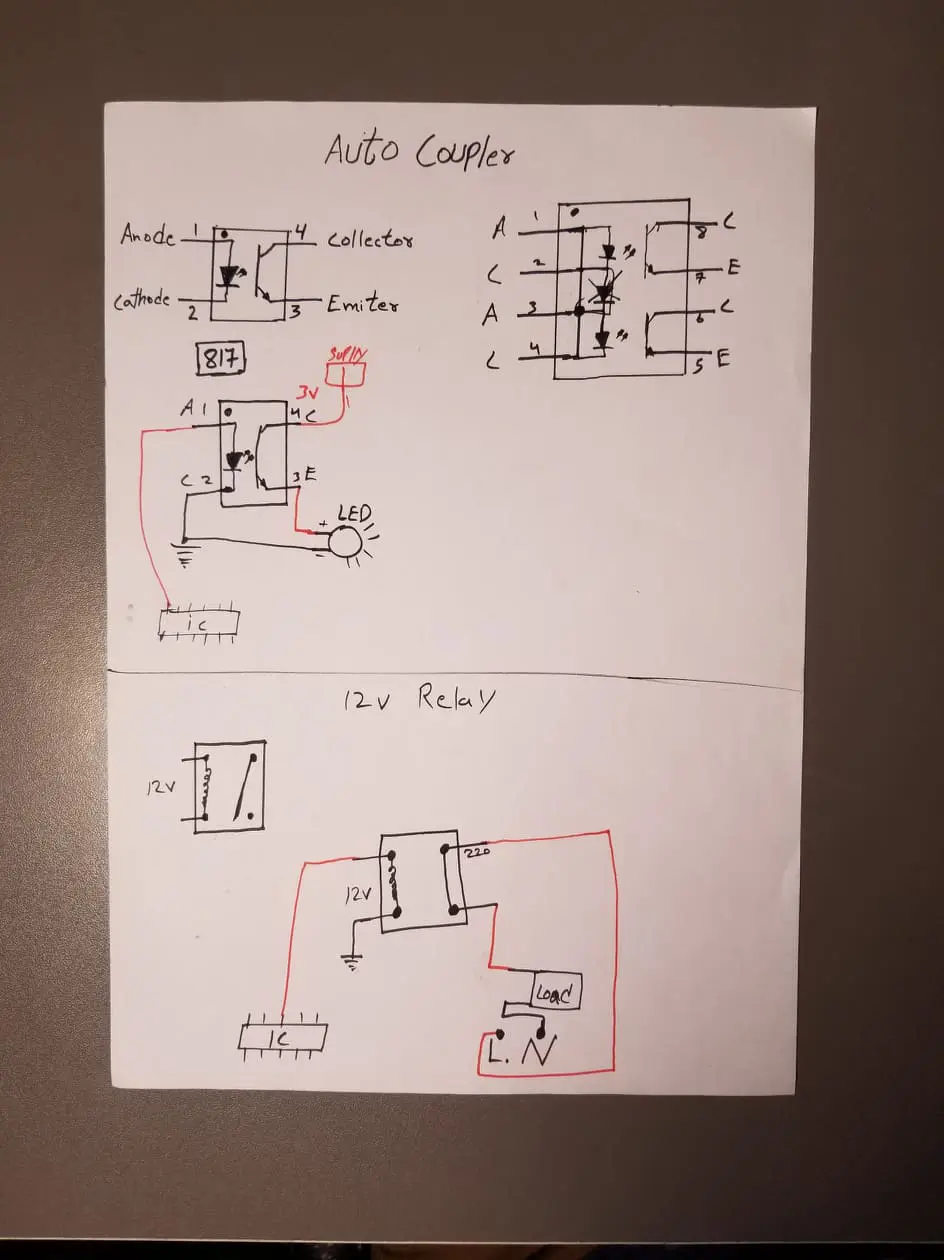 Auto Coupler
Anode 1 4 Collector
Cathode 2 3 Emiter
817
A 1 8 C
C 2 7 E
A 3 6 C
C 4 5 E
3V
A 1 4 C
C 2 3 E
+ LED
-
ic
12v Relay
12V
220
12V
Load
IC
L. N